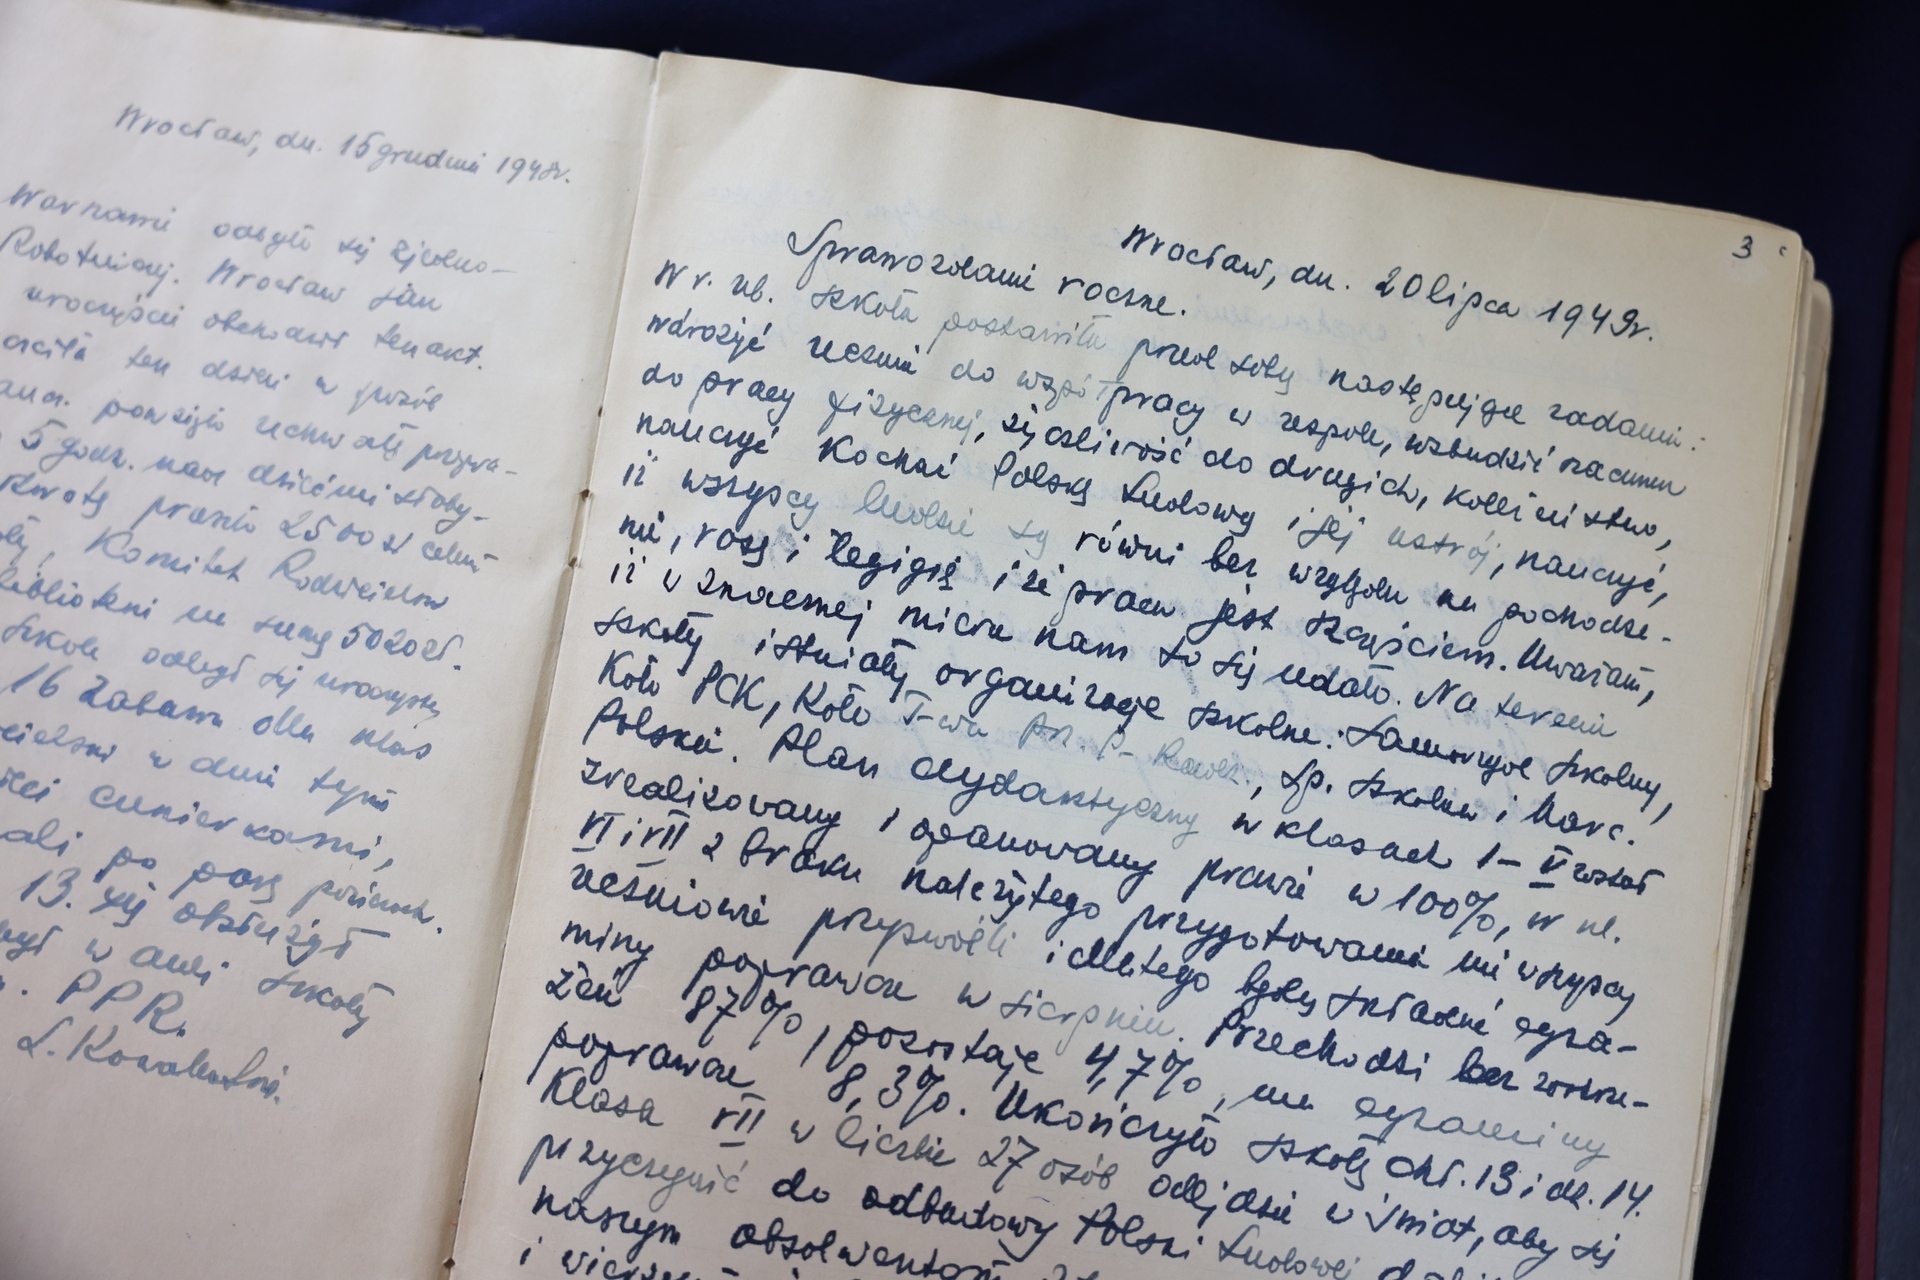 Wrocław, dn. 15 grudnia 1948r.
Warszawie odbyło się Zjedno-
Robotniczej. Wrocław jak
uroczyście obchodził ten akt.
ciła ten dzień w sposób
powzięto uchwałę przepra-
5 godz. nad dziećmi słaby-
kwotę prawie 2500 zł celem
Komitet Rodzicielski
biblioteki na sumę 5020 zł.
szkole odbyła się uroczysta
16 zabawa dla klas
cielski w dniu tym
cukierkami,
ali po parę
13. się obsłużył
w auli szkoły
PPR.
L. Kowalewski.
3
Wrocław, dn. 20 lipca 1949r.
Sprawozdanie roczne.
W r. ub. szkoła postawiła przed sobą następujące zadania:
wdrożyć ucznia do współpracy w zespole, wzbudzić szacunek
do pracy fizycznej, życzliwość do drugich, koleżeństwo,
nauczyć kochać Polskę Ludową i jej ustrój, nauczyć,
iż wszyscy ludzie są równi bez względu na pochodze-
nie, rasę i religię i że praca jest szczęściem. Uważam,
iż w znacznej mierze nam to się udało. Na terenie
szkoły istniały organizacje szkolne: Samorząd Szkolny,
Koło PCK, Koło T-wa Prz. P- Radz., Sp. Szkolna i Harc.
Polskie. Plan dydaktyczny w klasach I - V został
zrealizowany i opanowany prawie w 100%, w kl.
VI i VII z braku należytego przygotowania nie wszyscy
uczniowie przyswoili i dlatego będą składać egza-
miny poprawcze w sierpniu. Przechodzi bez zastrze-
żeń 87%, pozostaje 4,7%, ma egzaminy
poprawcze 8,3%. Ukończyło szkołę chł. 13 i dz. 14.
Klasa VII w liczbie 27 osób odejdzie w świat, aby się
przyczynić do odbudowy Polski Ludowej
naszym absolwentom
i